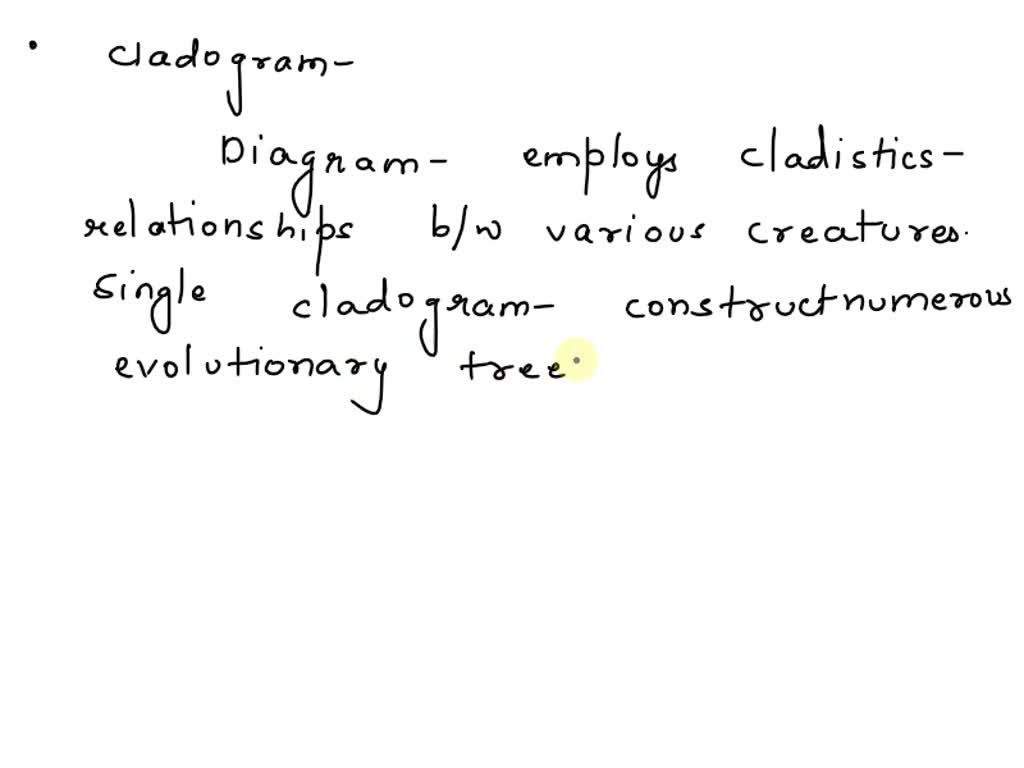 • cladogram-
Diagram- employs cladistics-
relationships b/w various creatures.
single cladogram- constructnumerous
evolutionary tree